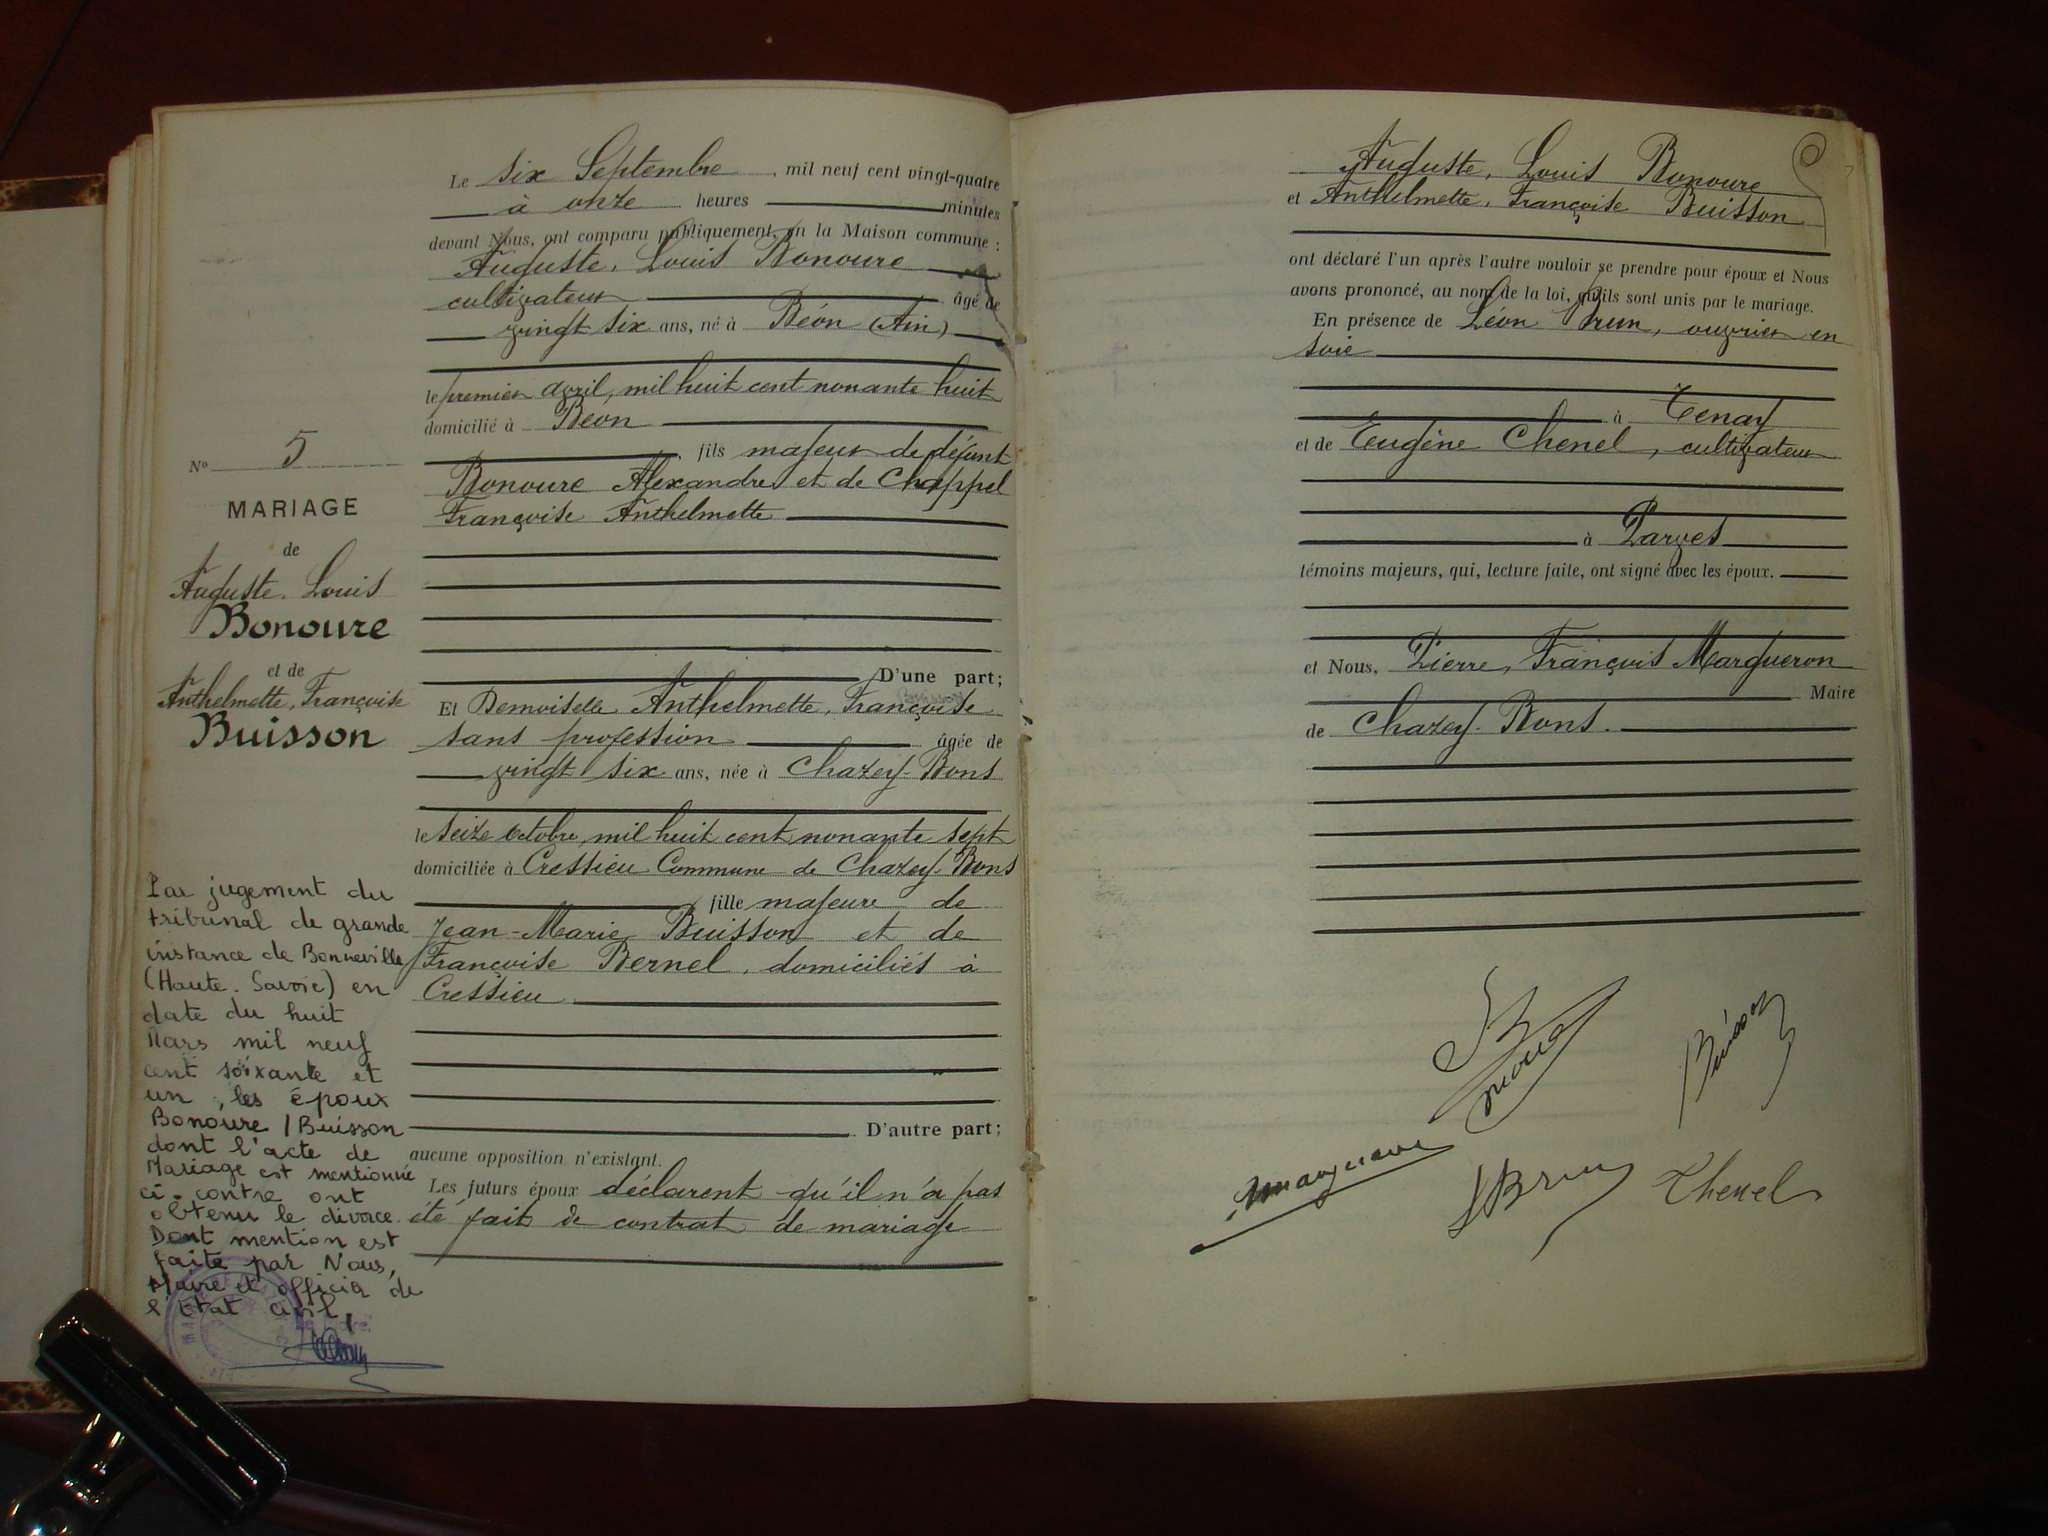 Nº 5
MARIAGE
de
Auguste, Louis
Bonoure
et de
Anthelmette, Françoise
Buisson
Par jugement du
tribunal de grande
instance de Bonneville
(Haute-Savoie) en
date du huit
Mars mil neuf
cent soixante et
un, les époux
Bonoure / Buisson
dont l'acte de
Mariage est mentionné
ci-contre ont
obtenu le divorce.
Dont mention est
faite par Nous,
Maire et officier de
l'Etat civil,
Le six Septembre, mil neuf cent vingt-quatre
à onze heures minutes
devant Nous, ont comparu publiquement, en la Maison commune :
Auguste, Louis Bonoure
cultivateur âgé de
vingt six ans, né à Béon (Ain)
le premier avril, mil huit cent nonante huit
domicilié à Béon
fils majeur de défunt
Bonoure Alexandre et de Chappel
Françoise Anthelmette
D'une part;
Et Demoiselle Anthelmette, Françoise
sans profession âgée de
vingt six ans, née à Chazey-Bons
le seize octobre, mil huit cent nonante sept
domiciliée à Cressieu Commune de Chazey-Bons
fille majeure de
Jean-Marie Buisson et de
Françoise Bernel, domiciliés à
Cressieu
D'autre part;
aucune opposition n'existant.
Les futurs époux déclarent qu'il n'a pas
été fait de contrat de mariage
Auguste, Louis Bonoure
et Anthelmette, Françoise Buisson
ont déclaré l'un après l'autre vouloir se prendre pour époux et Nous
avons prononcé, au nom de la loi, qu'ils sont unis par le mariage.
En présence de Léon Brun, ouvrier en
soie
à Tenay
et de Eugène Chenel, cultivateur
à Parves
témoins majeurs, qui, lecture faite, ont signé avec les époux.
et Nous, Pierre, François Margueron
Maire
de Chazey-Bons.
Bonoure
Buisson
Margueron
LBrun
Chenel